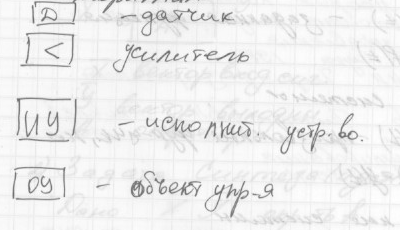 Д - датчик
< усилитель
ИУ - исполнит. устр. во.
ОУ - объект упр-я